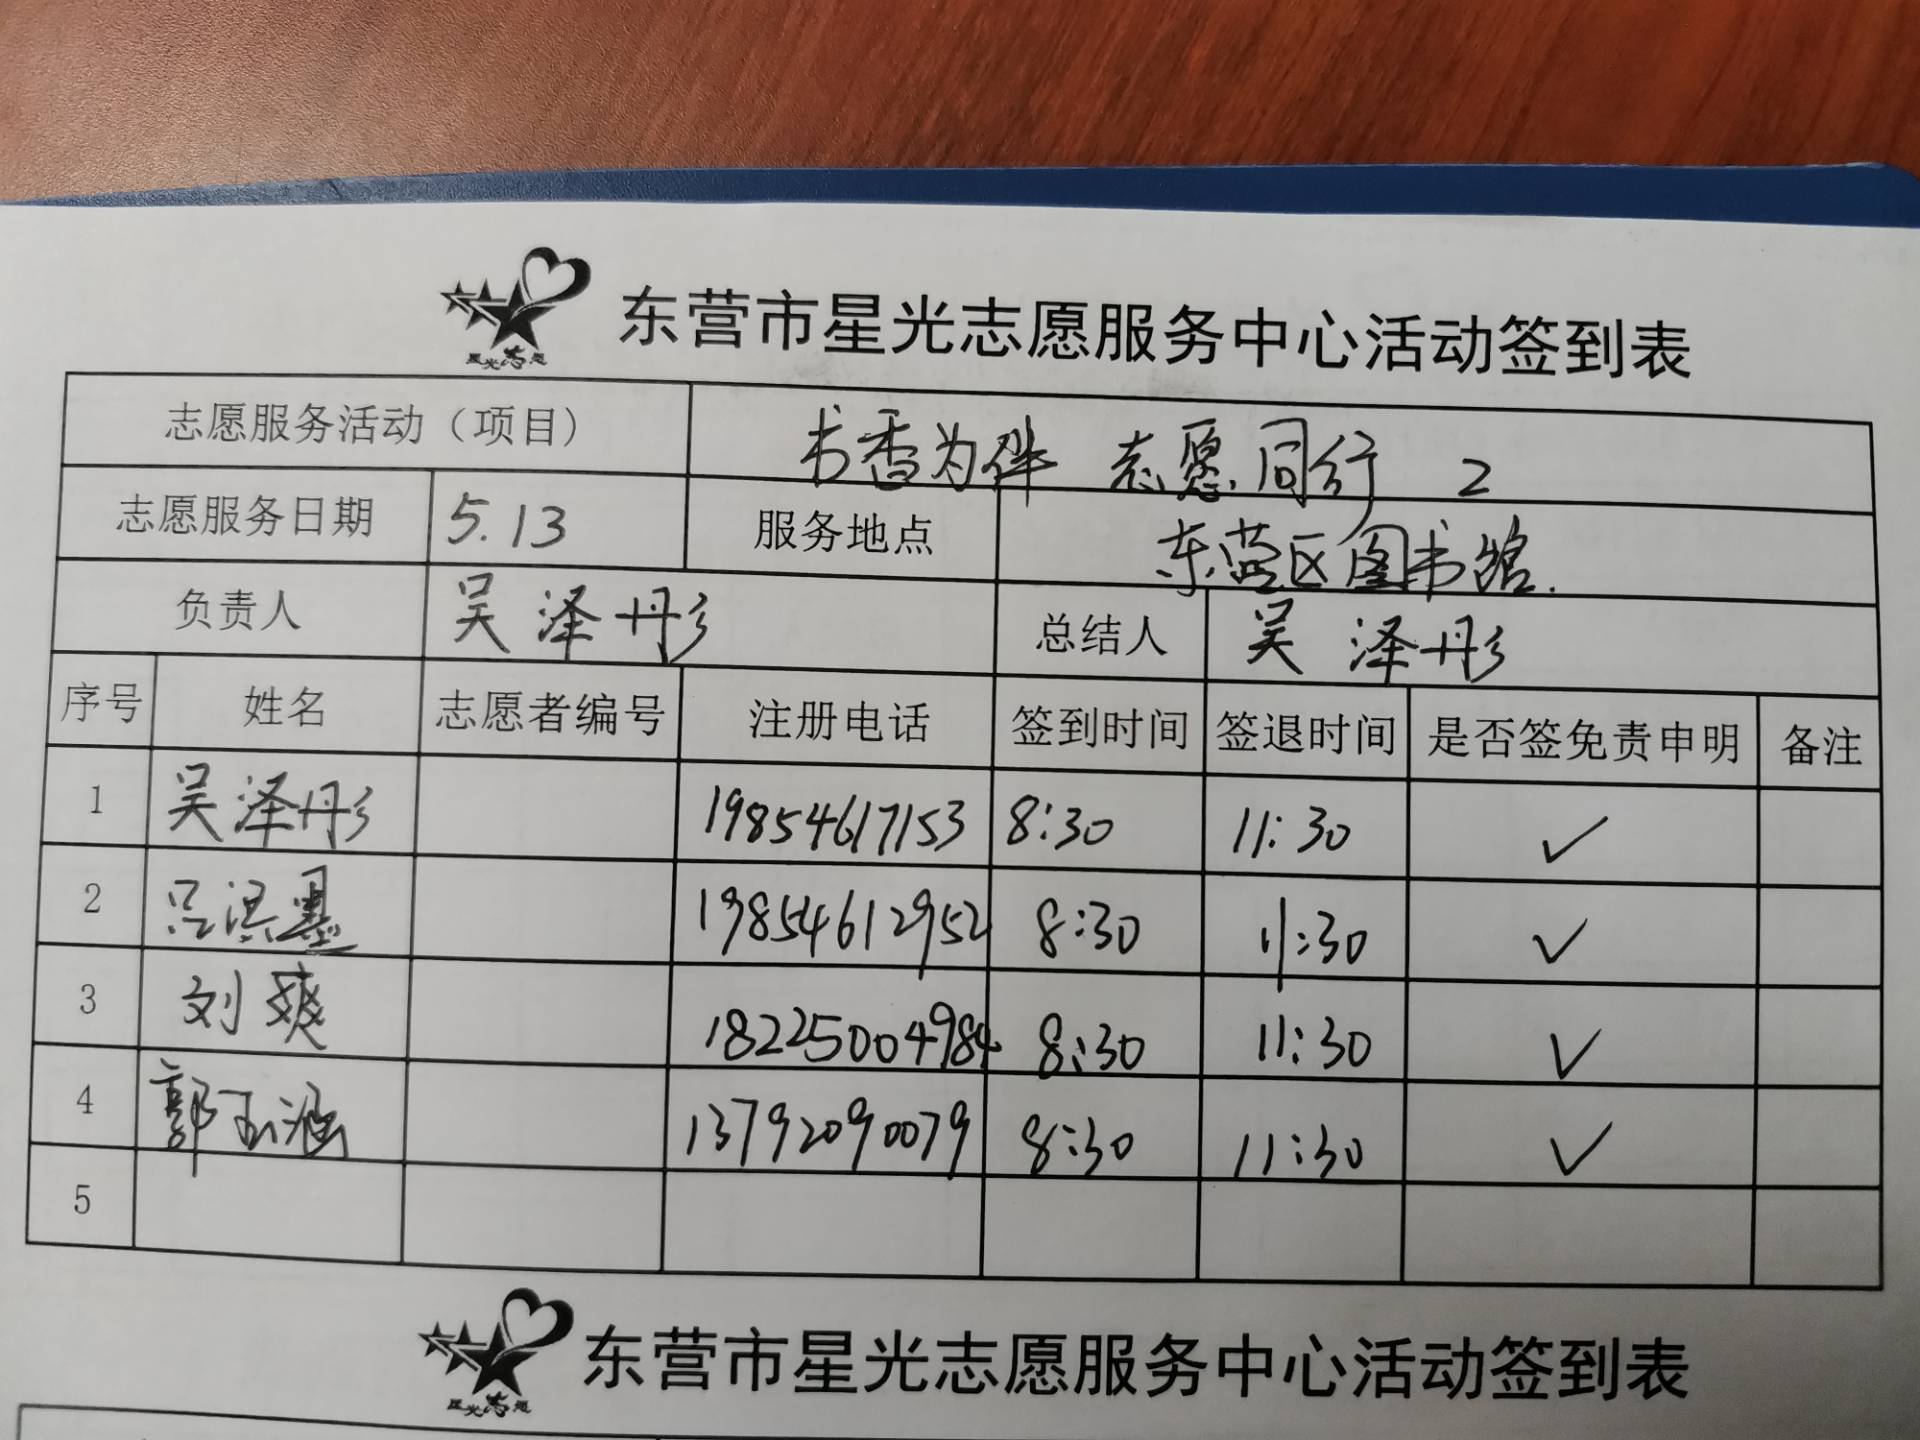 星光志愿
东营市星光志愿服务中心活动签到表
志愿服务活动（项目） 书香为伴 志愿同行 2
志愿服务日期 5.13 服务地点 东营区图书馆.
负责人 吴泽彤 总结人 吴泽彤
序号 姓名 志愿者编号 注册电话 签到时间 签退时间 是否签免责申明 备注
1 吴泽彤 19854617153 8:30 11:30 ✓
2 吕淏墨 19854612952 8:30 11:30 ✓
3 刘爽 18225004984 8:30 11:30 ✓
4 郭玉涵 13792090079 8:30 11:30 ✓
5
星光志愿
东营市星光志愿服务中心活动签到表